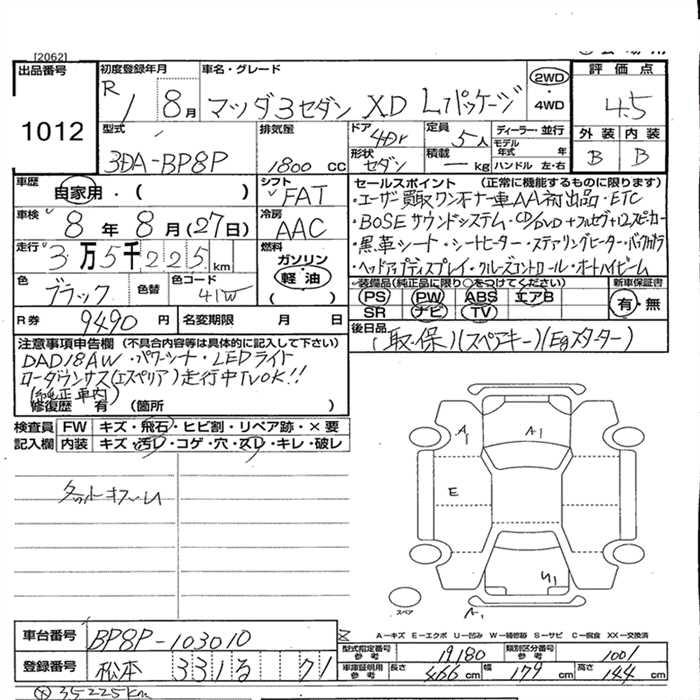 [2062]
出品番号 初度登録年月 車名・グレード 評価点
1012
R1 8月 マツダ3セダン XD Lパッケージ 2WD・4WD 4.5
型式 排気量 ドア 定員 ディーラー・並行 外装 内装
3DA-BP8P 1800cc 4Dr 5人 モデル年式 年 B B
形状 セダン 積載 ー kg ハンドル 左・右
車歴 自家用・( ) シフト FAT セールスポイント (正常に機能するものに限ります)
・ユーザー買取ワンオーナー車AA初出品・ETC
車検 8年8月(27日) 冷房 AAC
・BOSEサウンドシステム・CD/DVD+フルセグ+12スピーカー
走行 3万5千225km 燃料 ガソリン 軽油
・黒革シート・シートヒーター・ステアリングヒーター・バックカメラ
・ヘッドアップディスプレイ・クルーズコントロール・オートハイビーム
色 ブラック 色替 色コード 41W
装備品(純正品に限り○をつけてください) 新車保証書
PS PW ABS エアB 有・無
SR ナビ TV
R券 9490円 名変期限 月 日 後日品
(取・保)(スペアキー)(Egスターター)
注意事項申告欄 (不具合内容等は具体的に記入して下さい)
DAD18AW・パワーシート・LEDライト
ローダウンサス(エスペリア)走行中TVOK!!
(純正車内)
修復歴 有 (箇所 )
検査員 FW キズ・飛石・ヒビ割・リペア跡・×要
記入欄 内装 キズ・汚れ・コゲ・穴・スレ・キレ・破レ
A1 A1
E
U1
スペア
A1
A―キズ E―エクボ U―凹み W―補修跡 S―サビ C―腐食 XX―交換済
車台番号 BP8P-103010
型式指定番号 参考 19180 類別区分番号 参考 1001
登録番号 松本 331 る 71
車庫証明用 参考 長さ 466cm 幅 179cm 高さ 144cm
35225km